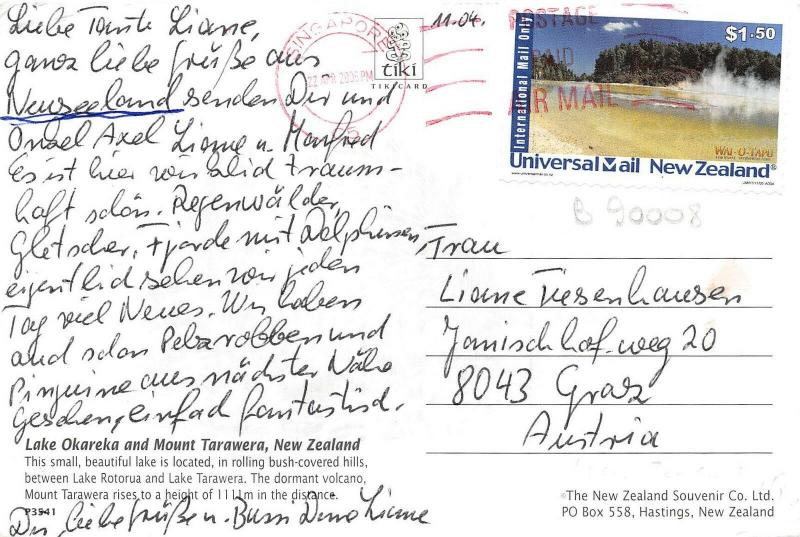 Liebe Tante Liane,
ganz liebe Grüße aus
Neuseeland senden Dir und
Onkel Axel Liane u. Manfred
Es ist hier wirklich traum-
haft schön. Regenwälder,
Gletscher, Fjorde mit Delphinen,
eigentlich sehen wir jeden
Tag viel Neues. Wir haben
auch schon Pelzrobben und
Pinguine aus nächster Nähe
gesehen, einfach fantastisch.
Lake Okareka and Mount Tarawera, New Zealand
This small, beautiful lake is located, in rolling bush-covered hills,
between Lake Rotorua and Lake Tarawera. The dormant volcano,
Mount Tarawera rises to a height of 1111m in the distance.
P3541
liebe Grüße u. Bussi Deine Liane
SINGAPORE
22 APR 2006 PM
tiki
TIKI CARD
11.04.
POSTAGE
PAID
AIR MAIL
International Mail Only
$1.50
WAI-O-TAPU
Universal Mail New Zealand®
B 90008
Frau
Liane Tiesenhausen
Janischhof-weg 20
8043 Graz
Austria
©The New Zealand Souvenir Co. Ltd.
PO Box 558, Hastings, New Zealand